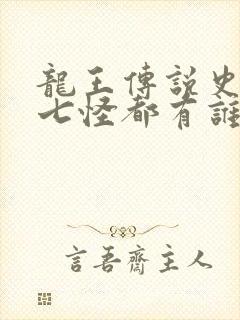 龍王傳說史
七怪都有誰
言吾齋主人